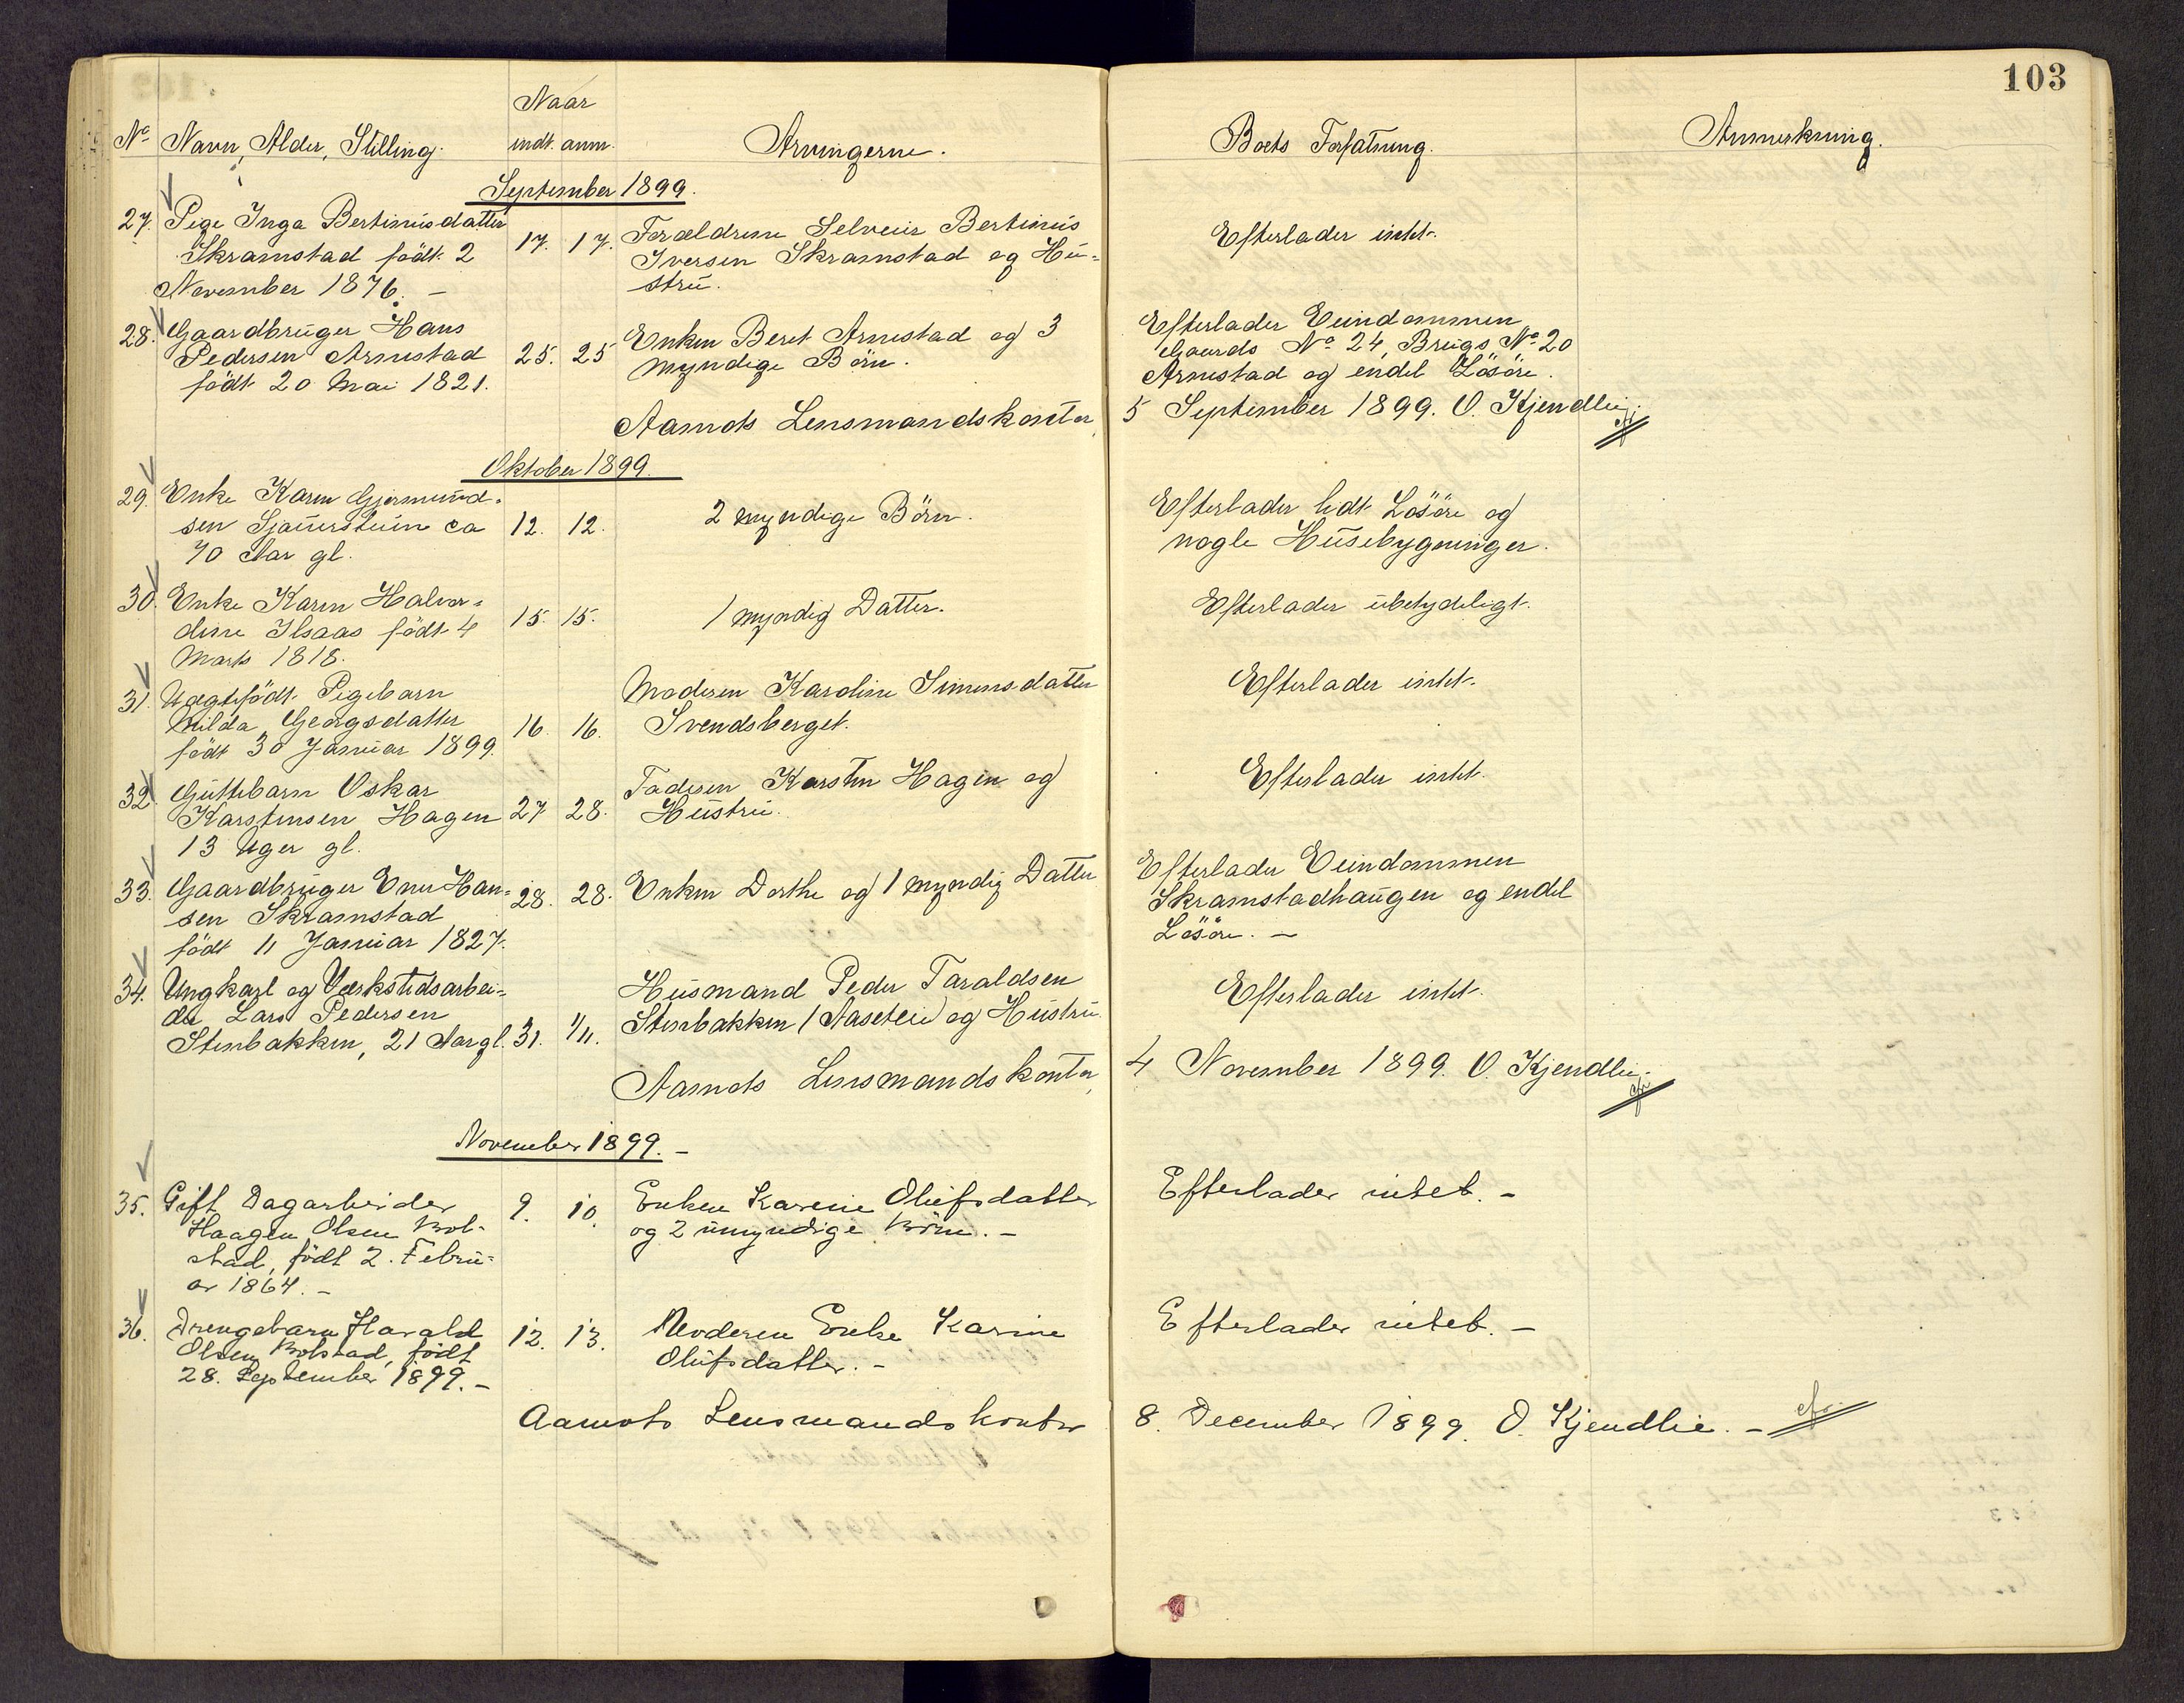 103
Naar
No. Navn, Alder, Stilling. indt. anm. Arvingerne. Boets Forfatning. Anmerkning.
September 1899.
27. Pige Inga Bertinusdatter
Skramstad født 2
November 1876. –
17. 17.
Forældrene Selveier Bertinus
Iversen Skramstad og Hu-
stru.
Efterlader intet.
28. Gaardbruger Hans
Pedersen Arnestad
født 20 Mai 1821.
25. 25
Enken Beret Arnestad og 3
myndige Börn.
Efterlader Eiendommen
Gaards No. 24, Brugs No. 20
Arnestad og endel Lösöre.
Aamots Lensmandskontor, 5 September 1899. O. Kjendlie.
Oktober 1899.
29. Enke Karen Gjermund-
sen Sjøuersteiin ca
70 Aar gl.
12. 12.
2 myndige Börn.
Efterlader lidt Lösöre og
nogle Husebygninger.
30. Enke Karen Halvor-
dine Ilsaas født 4
Marts 1818.
15. 15.
1 myndig Datter.
Efterlader ubetydeligt.
31. Uægtefödt Pigebarn
Milda Georgsdatter
født 30 Januar 1899.
16. 16.
Moderen Karoline Simensdatter
Svendsberget.
Efterlader intet.
32. Guttebarn Oskar
Karstensen Hagen
13 Uger gl.
27 28.
Faderen Karsten Hagen og
Hustru.
Efterlader intet.
33. Gaardbruger Ener Han-
sen Skramstad
født 11 Januar 1827.
28. 28.
Enken Dorthe og 1 myndig Datter
Efterlader Eiendommen
Skramstadhaugen og endel
Lösöre. –
34. Ungkarl og Værkstedsarbei-
der Lars Pedersen
Stenbakken, 21 Aar gl.
31. 1/11.
Husmand Peder Taraldsen
Stenbakken (Aaseteie) og Hustru.
Efterlader intet.
Aamots Lensmandskontor, 4 November 1899. O. Kjendlie.
November 1899. –
35. Gift Dagarbeider
Haagen Olsen Bol-
stad, født 2. Febru-
ar 1864. –
9. 10.
Enken Karine Olufsdatter
og 2 umyndige Börn. –
Efterlader intet. –
36. Drengebarn Harald
Olsen Bolstad, født
28. September 1899. –
12. 13.
Moderen Enke Karine
Olufsdatter. –
Efterlader intet. –
Aamots Lensmandskontor 8. December 1899. O. Kjendlie. –